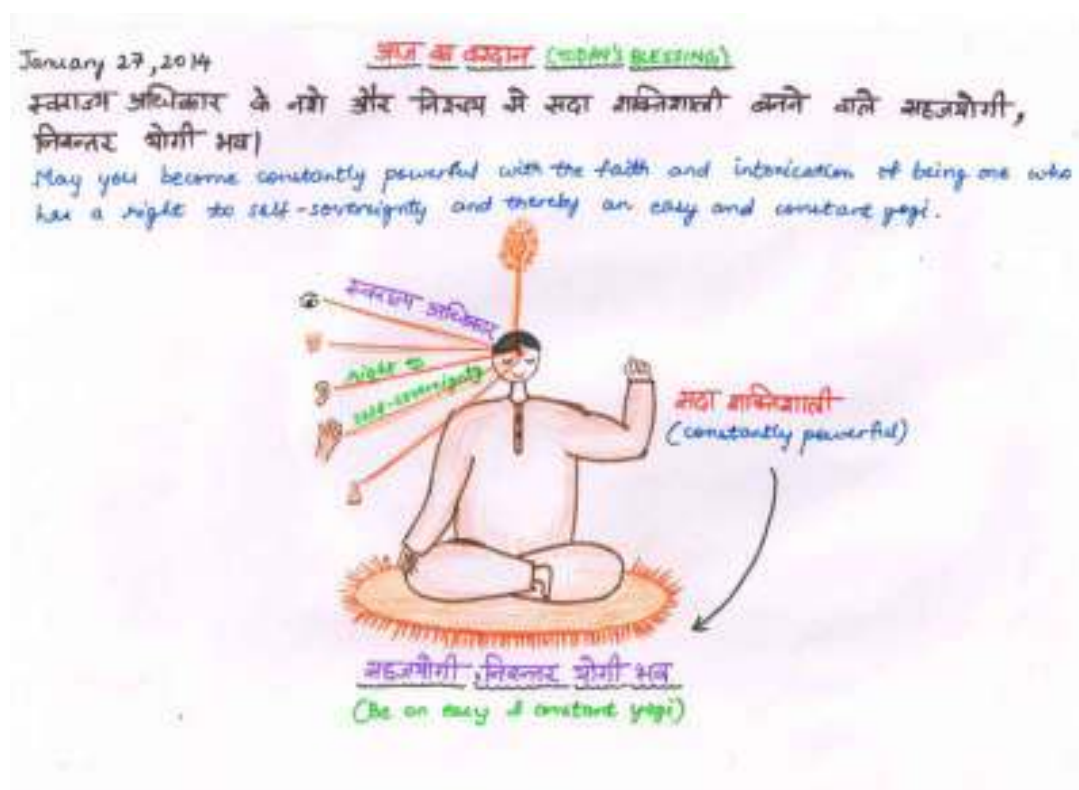 January 27, 2014
आज का वरदान (TODAY'S BLESSING)
स्वराज्य अधिकार के नशे और निश्चय से सदा शक्तिशाली बनने वाले सहजयोगी,
निरन्तर योगी भव।
May you become constantly powerful with the faith and intoxication of being one who
has a right to self-sovereignty and thereby an easy and constant yogi.
स्वराज्य अधिकार
right to
self-sovereignty
सदा शक्तिशाली
(constantly powerful)
सहजयोगी, निरन्तर योगी भव
(Be an easy & constant yogi)